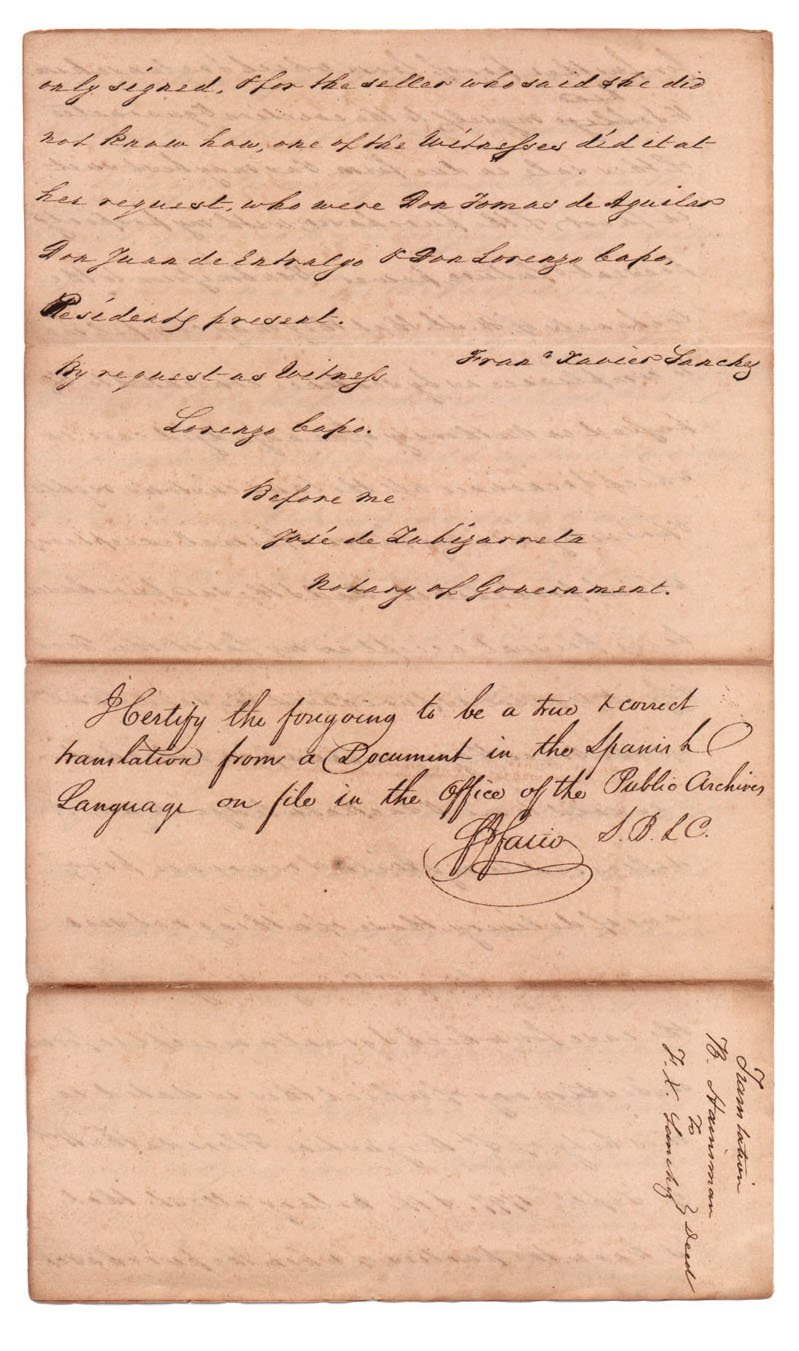 only signed, & for the seller who said she did
not know how, one of the Witnesses did it at
her request, who were Don Tomas de Aguilar
Don Juan de Entralgo & Don Lorenzo Capo,
Residents present.
Fran.ᵃ Xavier Sanchez
By request as Witness
Lorenzo Capo.
Before me
José de Zubizarreta
Notary of Government.
I Certify the foregoing to be a true & correct
translation from a Document in the Spanish
Language on file in the Office of the Public Archives
S. B. L C.
Translation
Hainsman
To } Deed
F. X. Sanchez